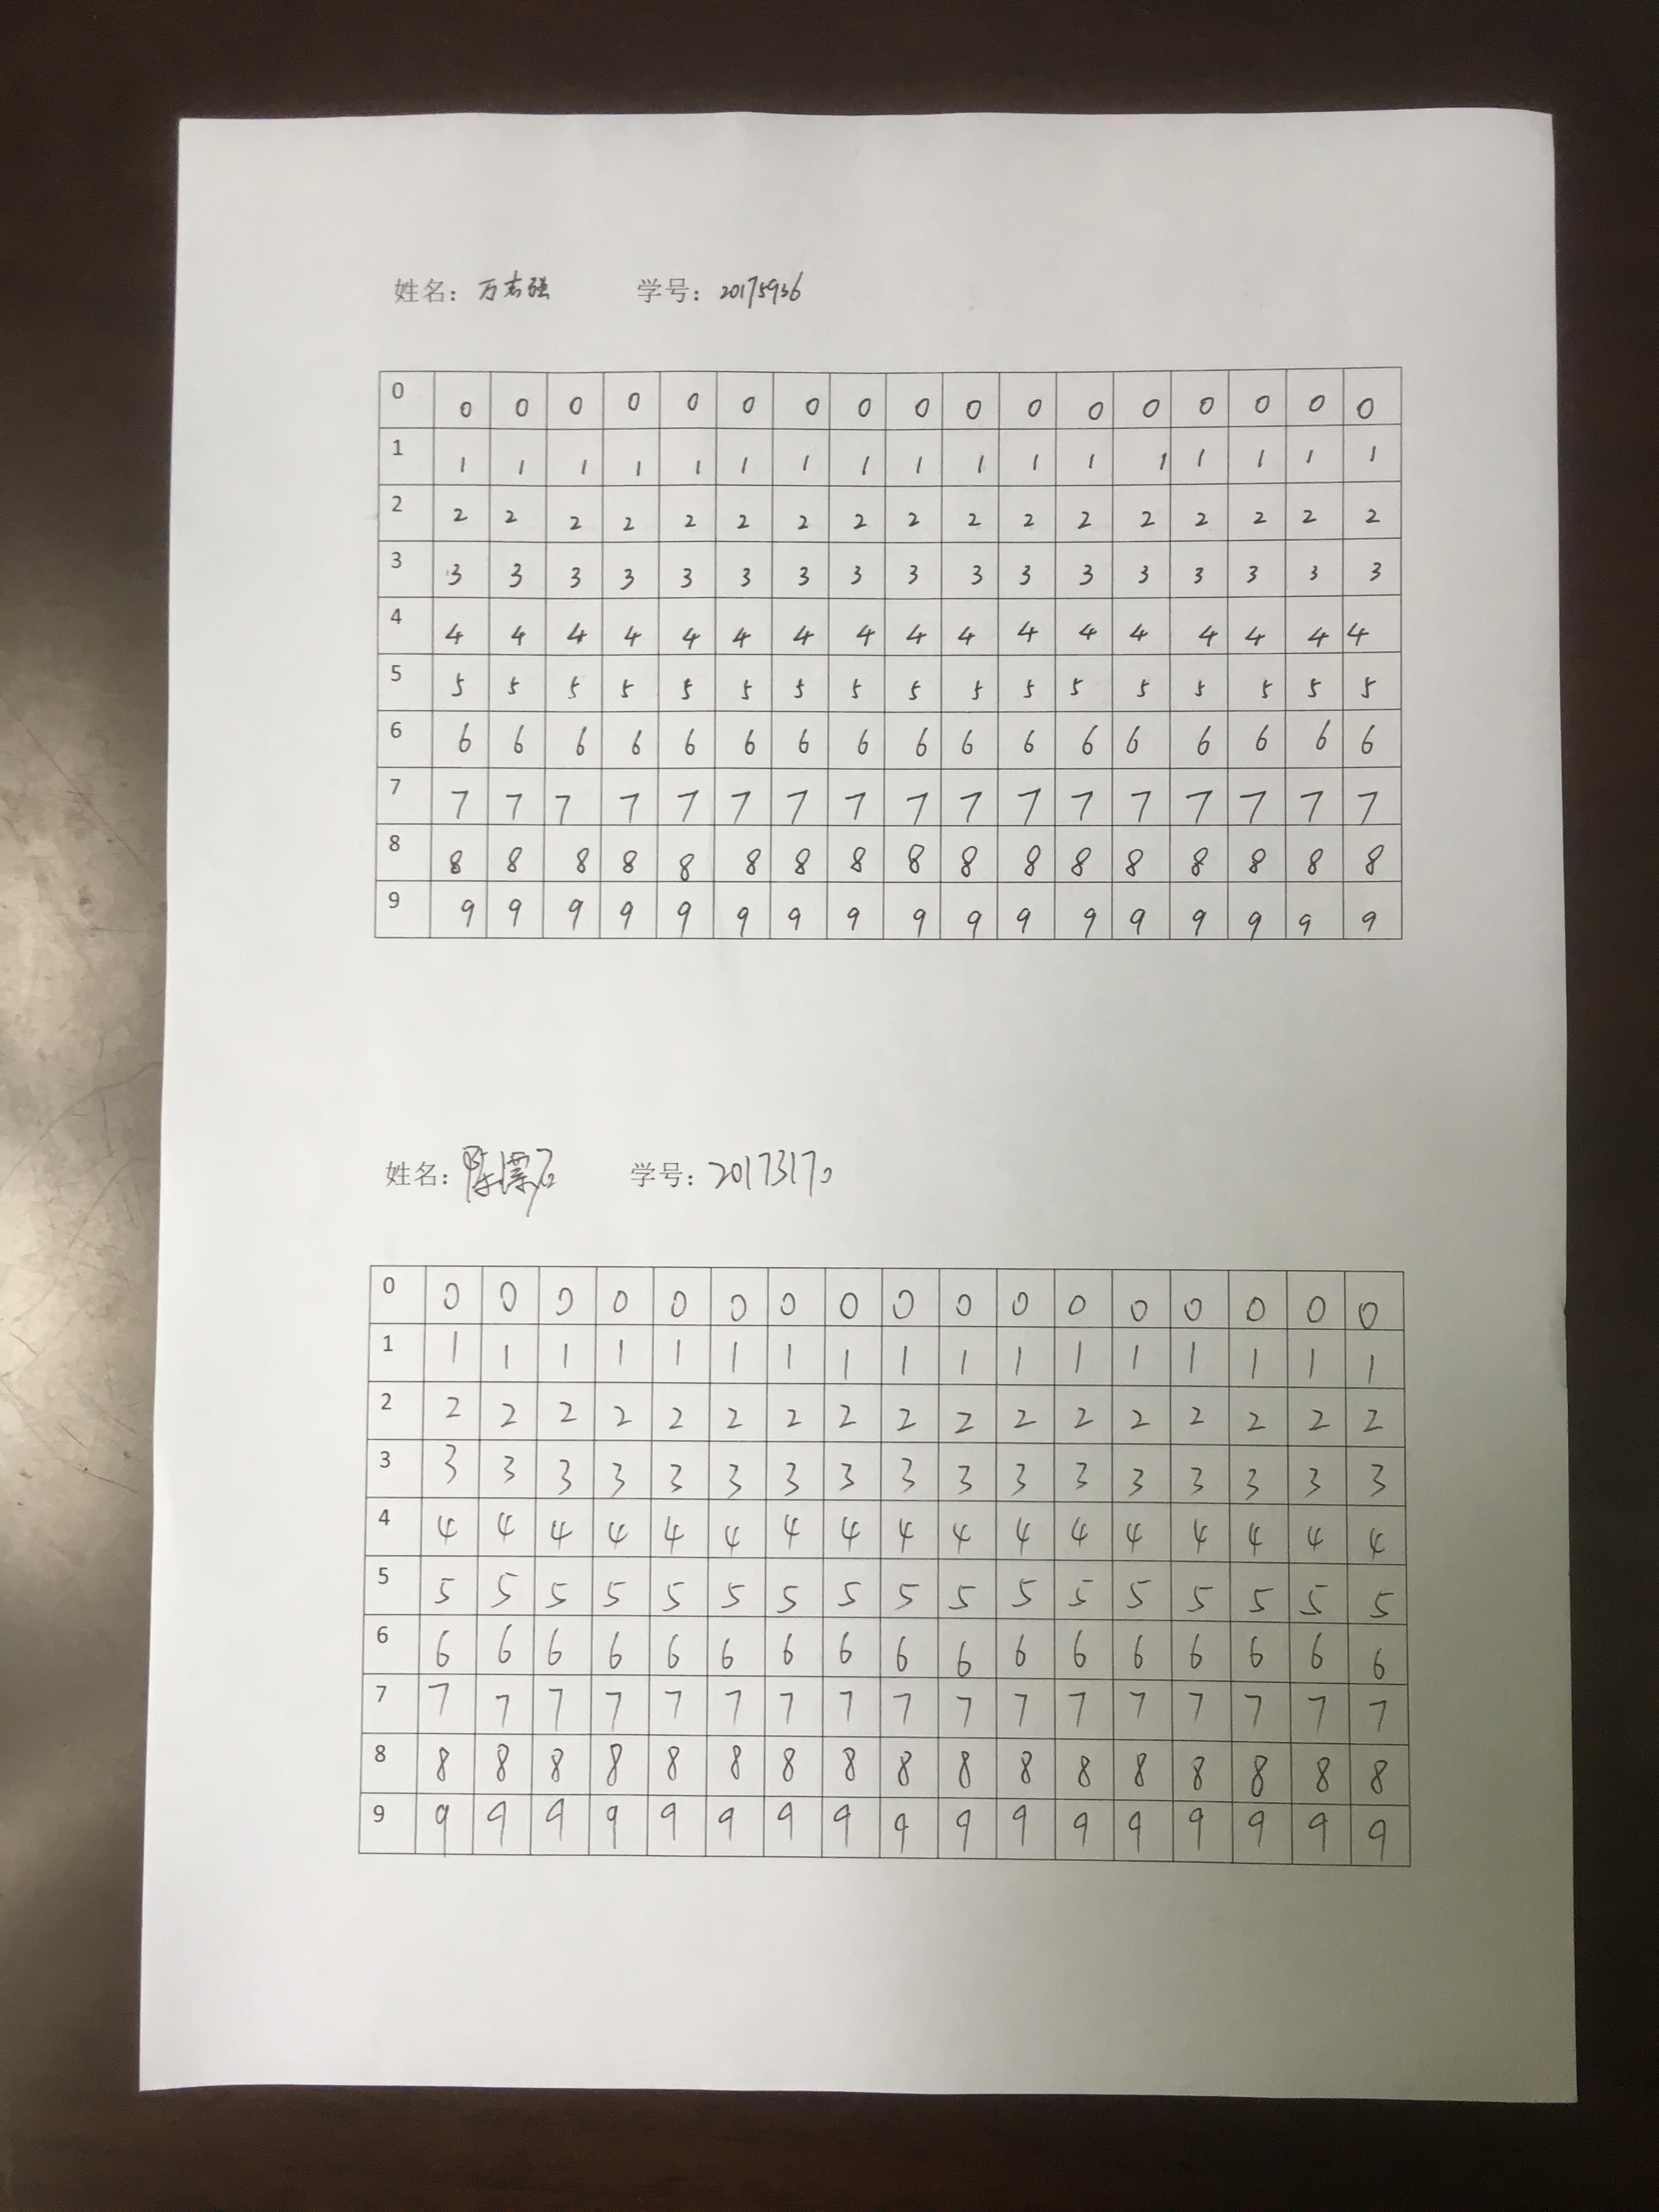 姓名：万志强 学号：20175936
0 0 0 0 0 0 0 0 0 0 0 0 0 0 0 0 0 0
1 1 1 1 1 1 1 1 1 1 1 1 1 1 1 1 1 1
2 2 2 2 2 2 2 2 2 2 2 2 2 2 2 2 2 2
3 3 3 3 3 3 3 3 3 3 3 3 3 3 3 3 3 3
4 4 4 4 4 4 4 4 4 4 4 4 4 4 4 4 4 4
5 5 5 5 5 5 5 5 5 5 5 5 5 5 5 5 5 5
6 6 6 6 6 6 6 6 6 6 6 6 6 6 6 6 6 6
7 7 7 7 7 7 7 7 7 7 7 7 7 7 7 7 7 7
8 8 8 8 8 8 8 8 8 8 8 8 8 8 8 8 8 8
9 9 9 9 9 9 9 9 9 9 9 9 9 9 9 9 9 9
姓名： 学号：20173170
0 0 0 0 0 0 0 0 0 0 0 0 0 0 0 0 0 0
1 1 1 1 1 1 1 1 1 1 1 1 1 1 1 1 1 1
2 2 2 2 2 2 2 2 2 2 2 2 2 2 2 2 2 2
3 3 3 3 3 3 3 3 3 3 3 3 3 3 3 3 3 3
4 4 4 4 4 4 4 4 4 4 4 4 4 4 4 4 4 4
5 5 5 5 5 5 5 5 5 5 5 5 5 5 5 5 5 5
6 6 6 6 6 6 6 6 6 6 6 6 6 6 6 6 6 6
7 7 7 7 7 7 7 7 7 7 7 7 7 7 7 7 7 7
8 8 8 8 8 8 8 8 8 8 8 8 8 8 8 8 8 8
9 9 9 9 9 9 9 9 9 9 9 9 9 9 9 9 9 9